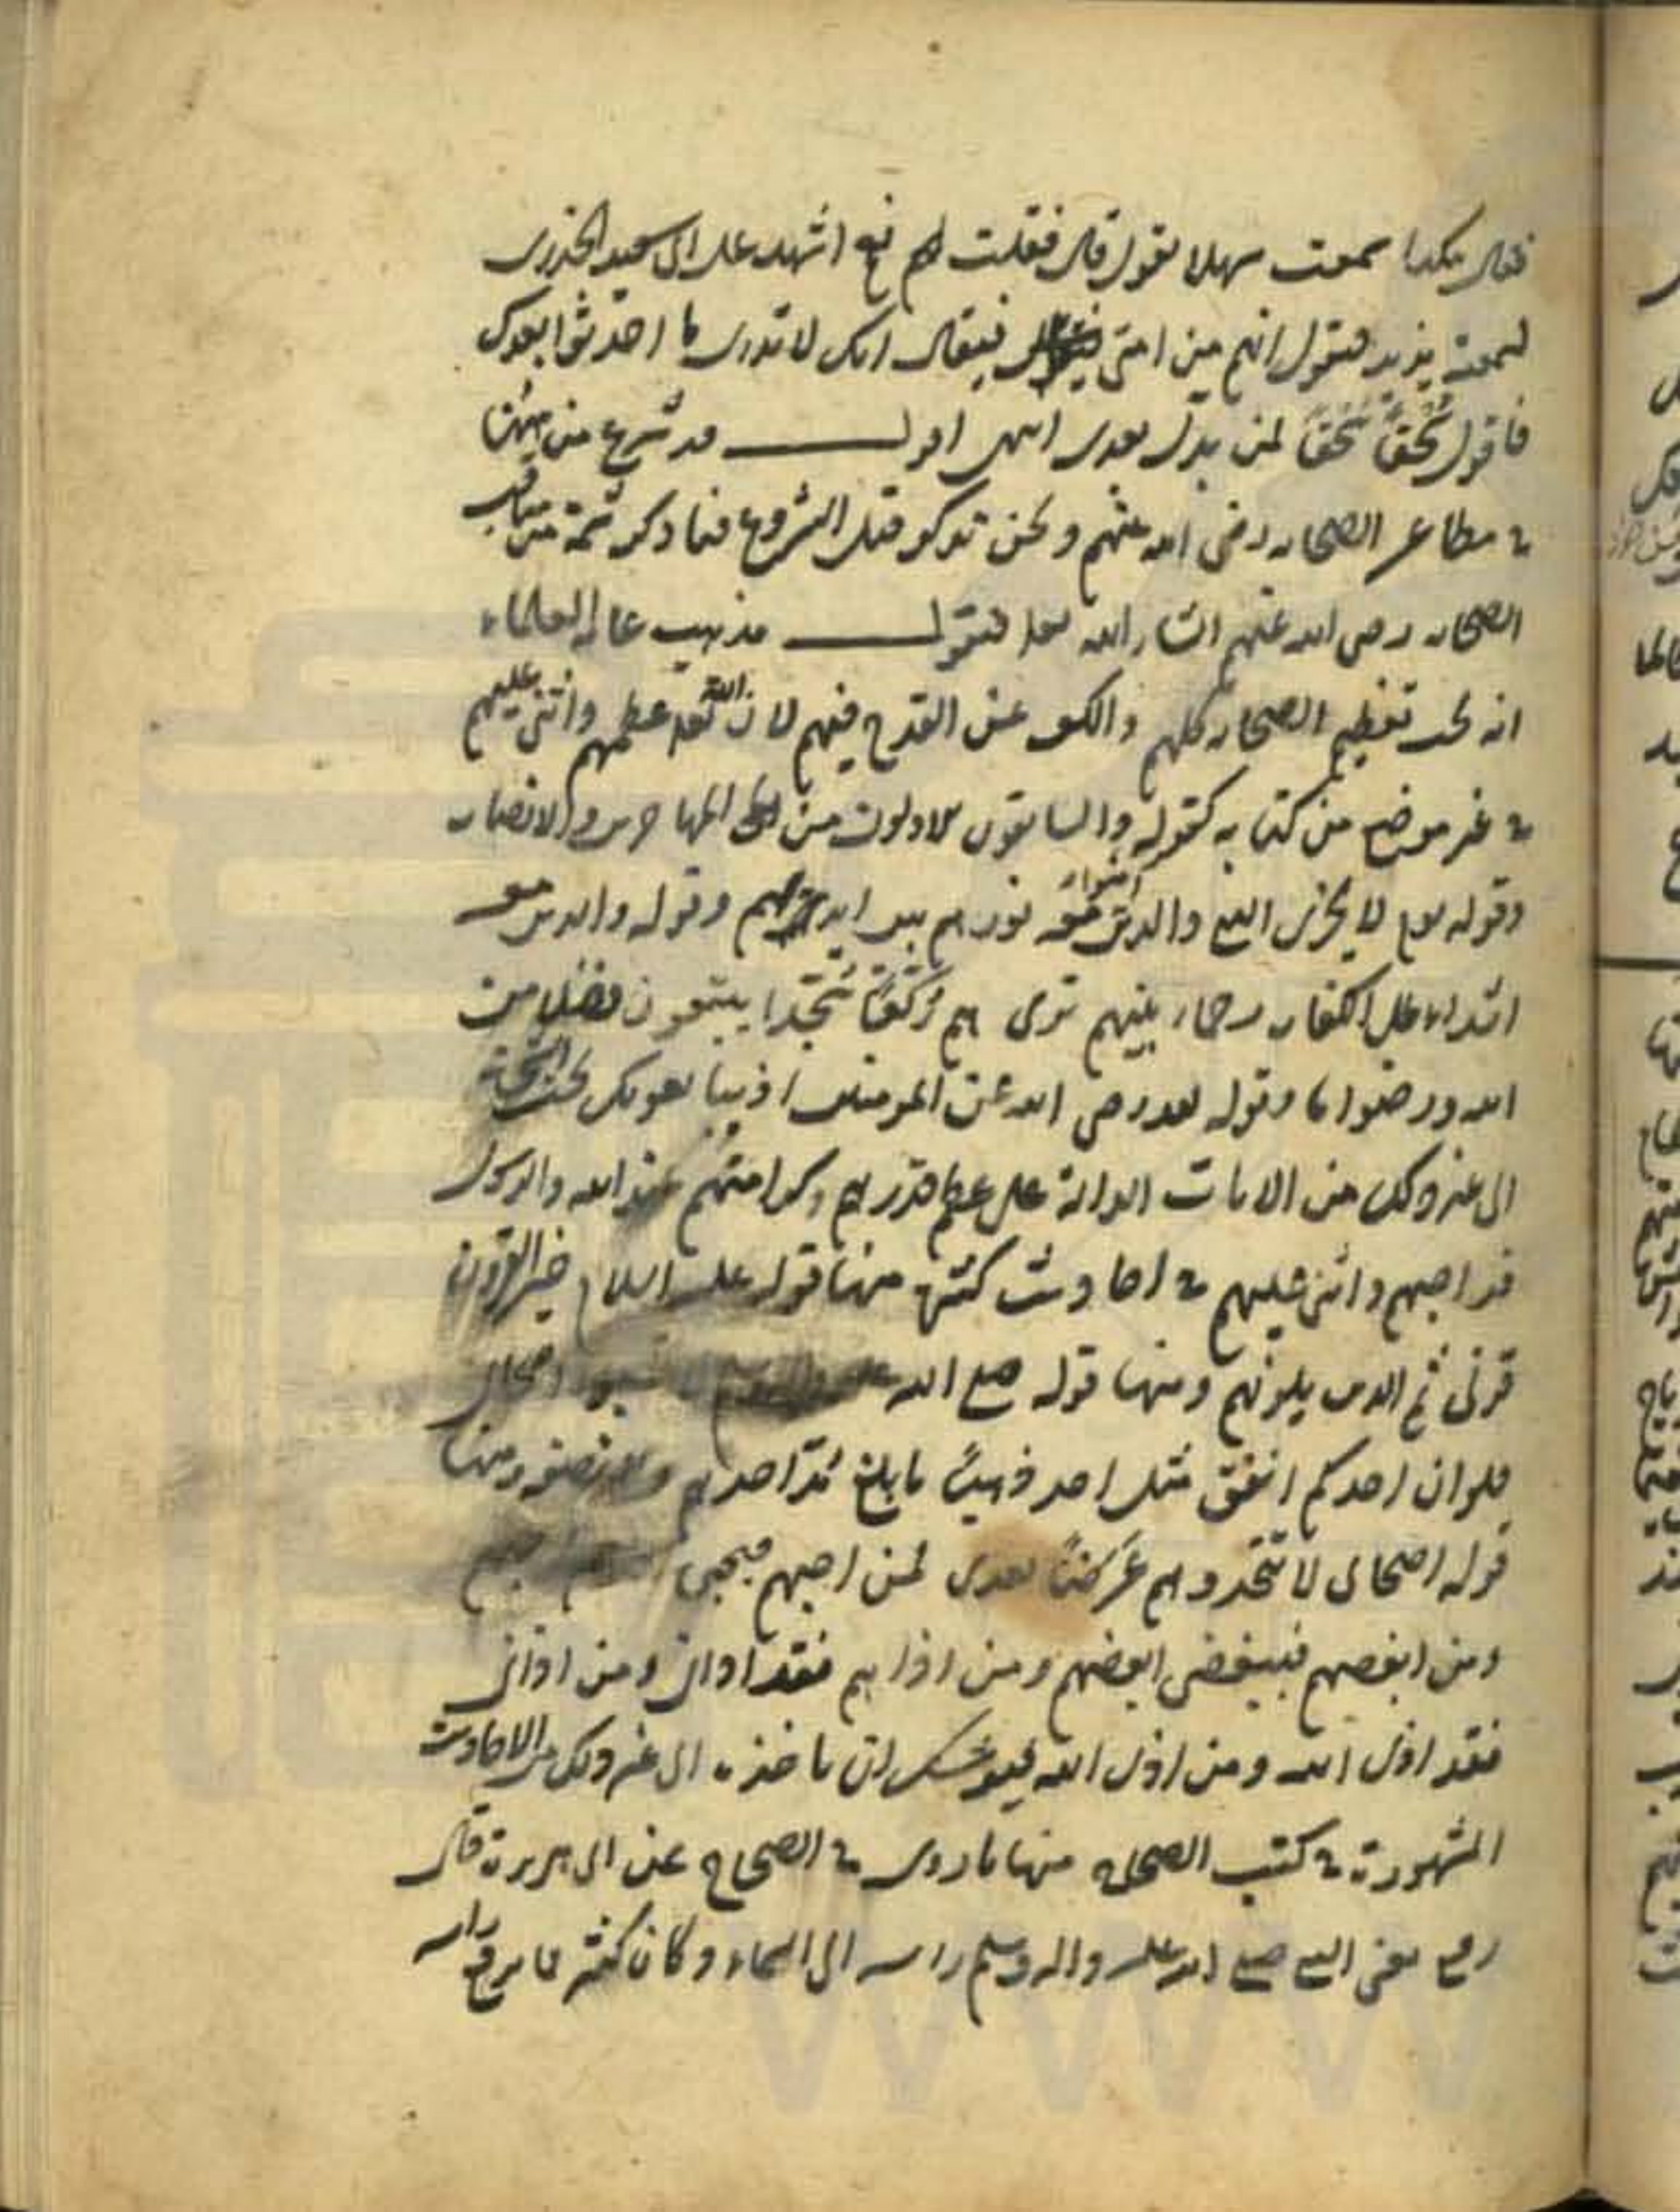 فقال هكذا سمعت سهلا يقول قال فقلت نعم اشهد على ابى سعيد الخدرى
لسمعته يزيد فيقول انهم من امتى فيقال انك لا تدرى ما احدثوا بعدك
فاقول سُحقًا سُحقًا لمن بدل بعدى انتهى اقول قد شرع من هيهنا
فى مطاعن الصحابه رضى الله عنهم ونحن نذكر قبل الشروع فيما ذكر ثمة مناقب
الصحابه رضى الله عنهم ان شاء الله تعالى فنقول مذهب عامه العلماء
انه يجب تعظيم الصحابه كلهم والكف عن القدح فيهم لان الله تعالى عظمهم واثنى عليهم
فى غير موضع من كتابه كقوله والسابقون الاولون من المهاجرين والانصار
وقوله يوم لا يخزى النبى والذين امنوا معه نورهم بين ايديهم وقوله والذين معه
اشداء على الكفار رحماء بينهم تريهم ركعًا سُجّدا يبتغون فضلا من
الله ورضوانا وقوله لقد رضى الله عن المومنين اذ يبايعونك تحت الشجرة
الى غير ذلك من الايات الدالة على عظم قدرهم وكرامتهم عند الله والرسول
قد احبهم واثنى عليهم فى احاديث كثيرة منها قوله عليه السلام خير القرون
قرنى ثم الذين يلونهم ومنها قوله صلى الله عليه اصحابى
فلو ان احدكم انفق مثل احد ذهبًا ما بلغ مُدّ احدهم ولا نصفه ومنها
قوله اصحابى لا تتخذوهم غرضًا بعدى لمن احبهم فبحبى
ومن ابغضهم فببغضى ابغضهم ومن اذاهم فقد اذانى ومن اذانى
فقد اذى الله ومن اذى الله فيوشك ان ياخذه الى غير ذلك من الاحاديث
المشهورة فى كتب الصحاح منها ما روى فى الصحاح عن ابى هريرة قال
رفع يعنى النبى صلى الله عليه واله وسلم راسه الى السماء وكان كثير مما يرفع راسه